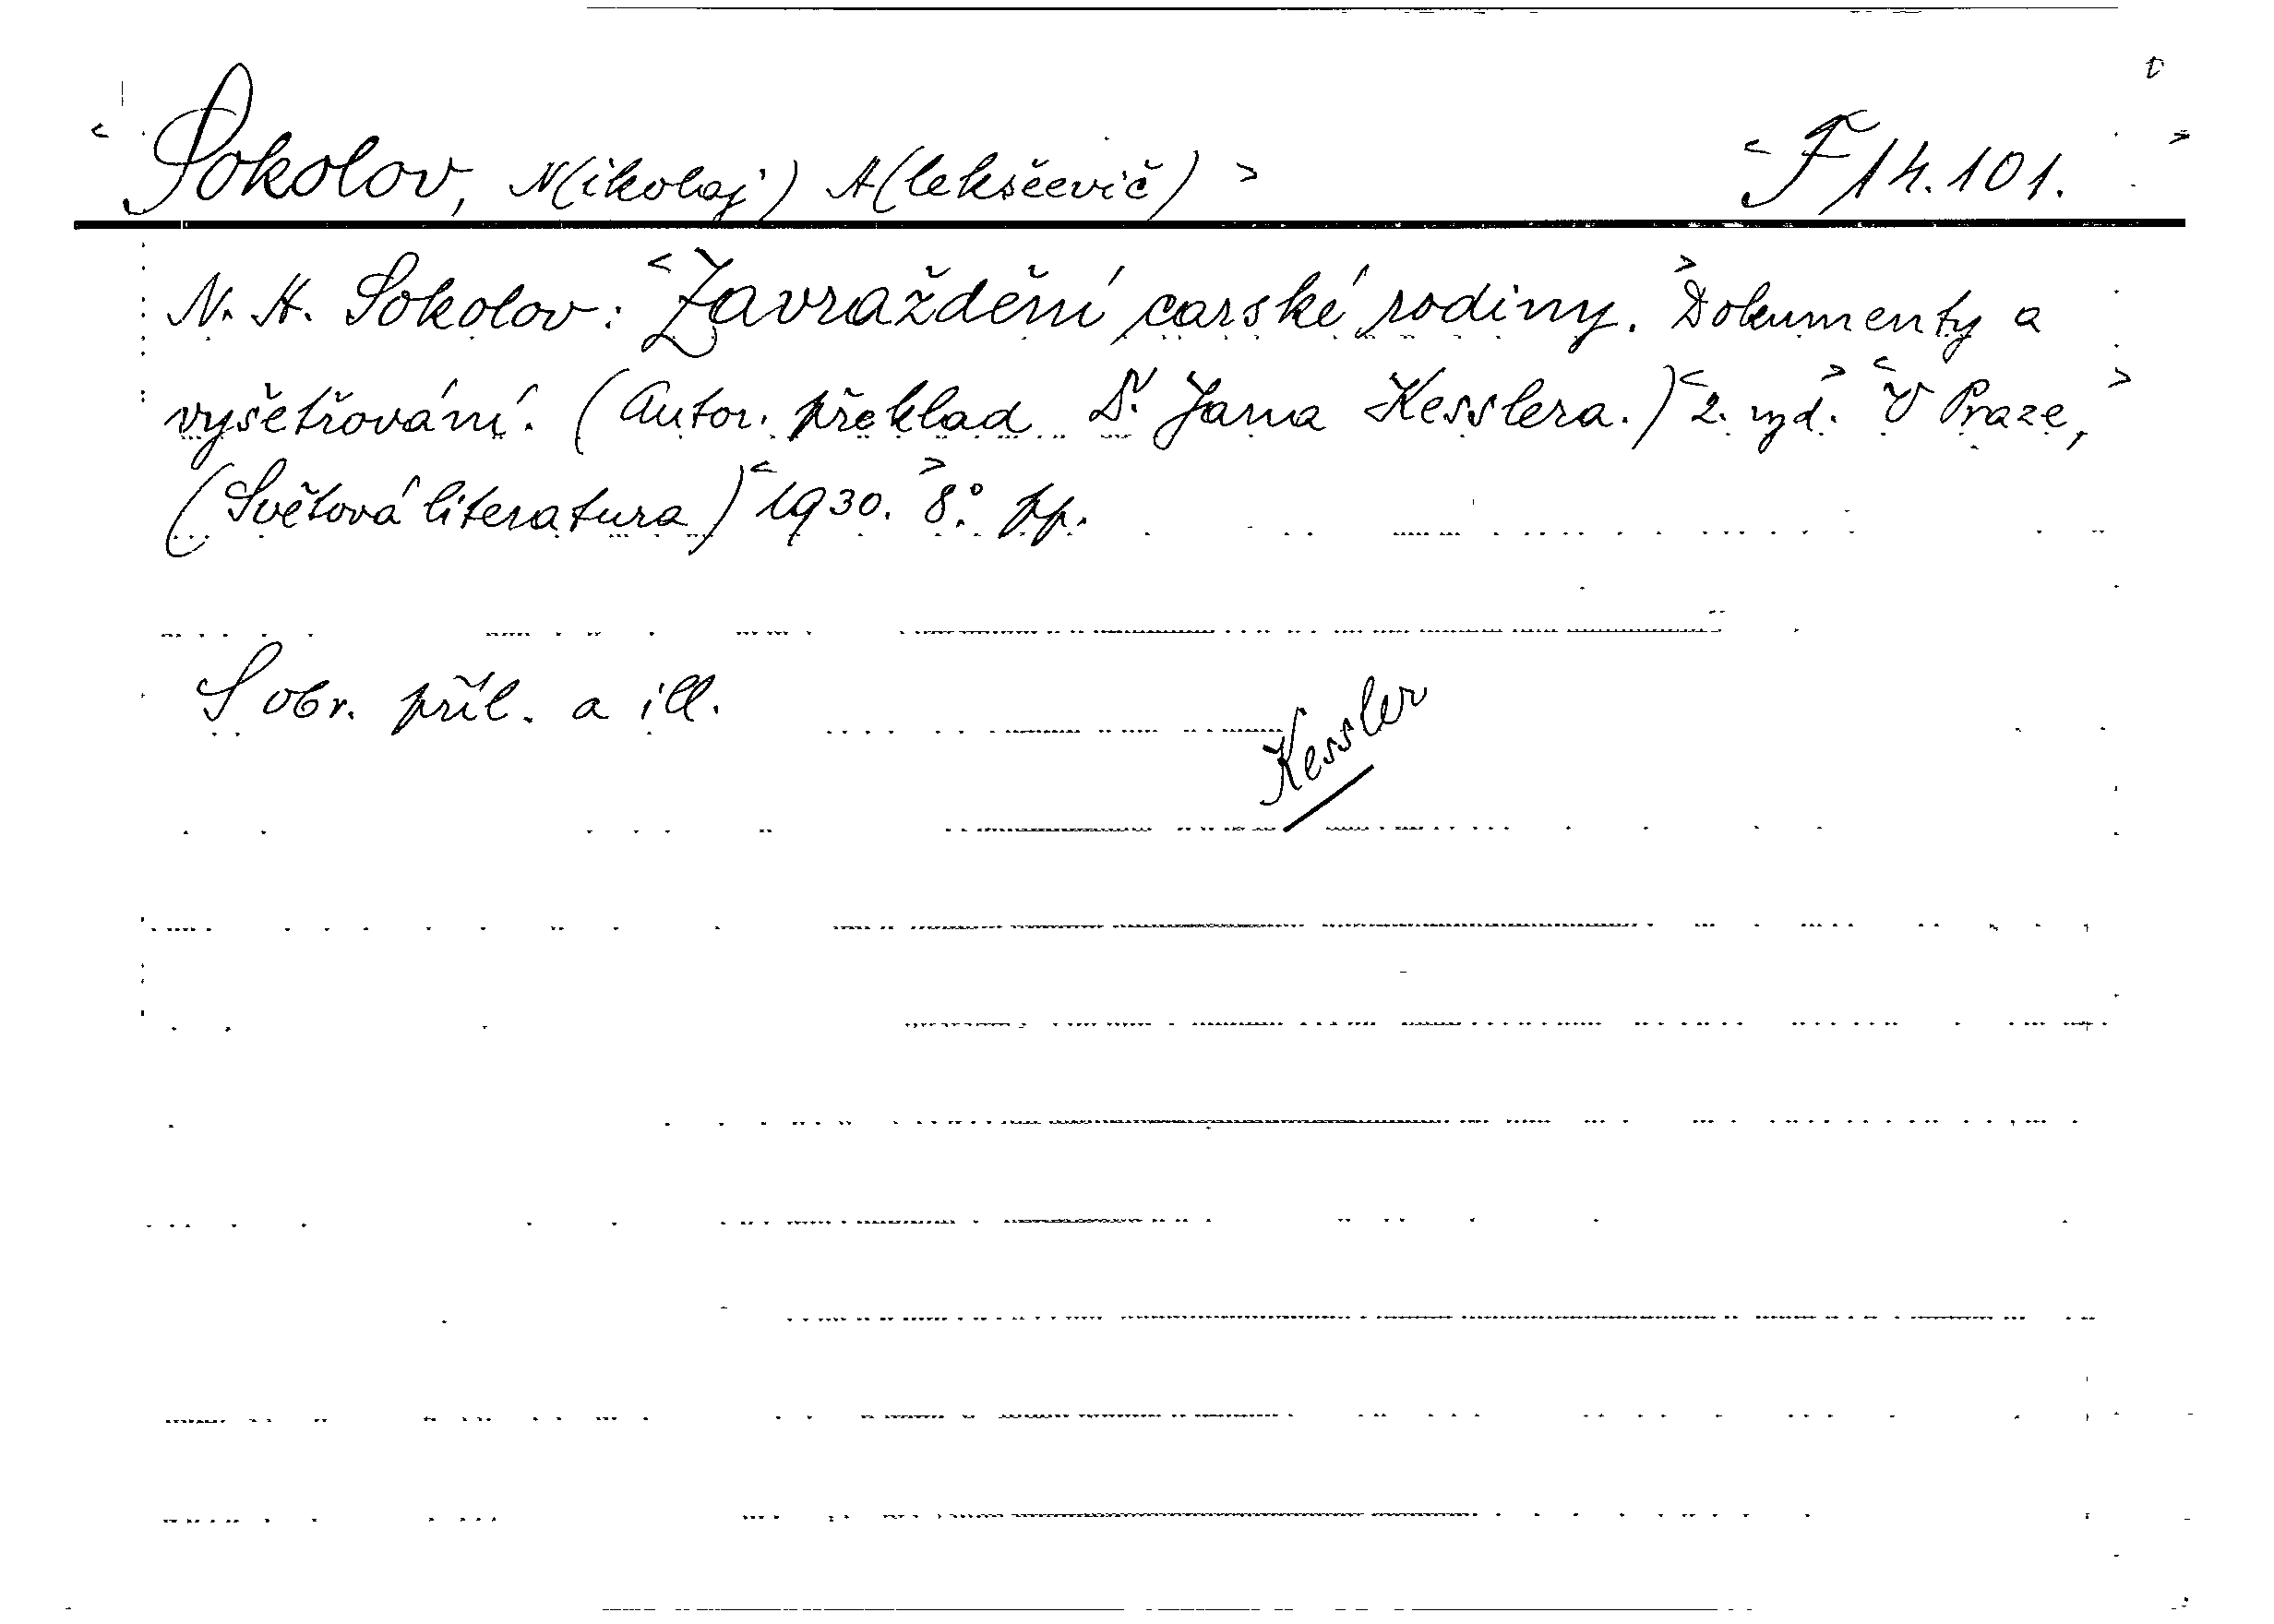 < Sokolov, N(ikolaj) A(leksěevič) > < F 14.101. >
N. A. Sokolov: < Zavraždění carské rodiny. > Dokumenty a
vyšetřování. (Autor. překlad Dr. Jana Kesslera.) < 2. vyd. > < V Praze, >
(Světová literatura) < 1930. > 8°. pp.
S obr. příl. a ill.
Kessler